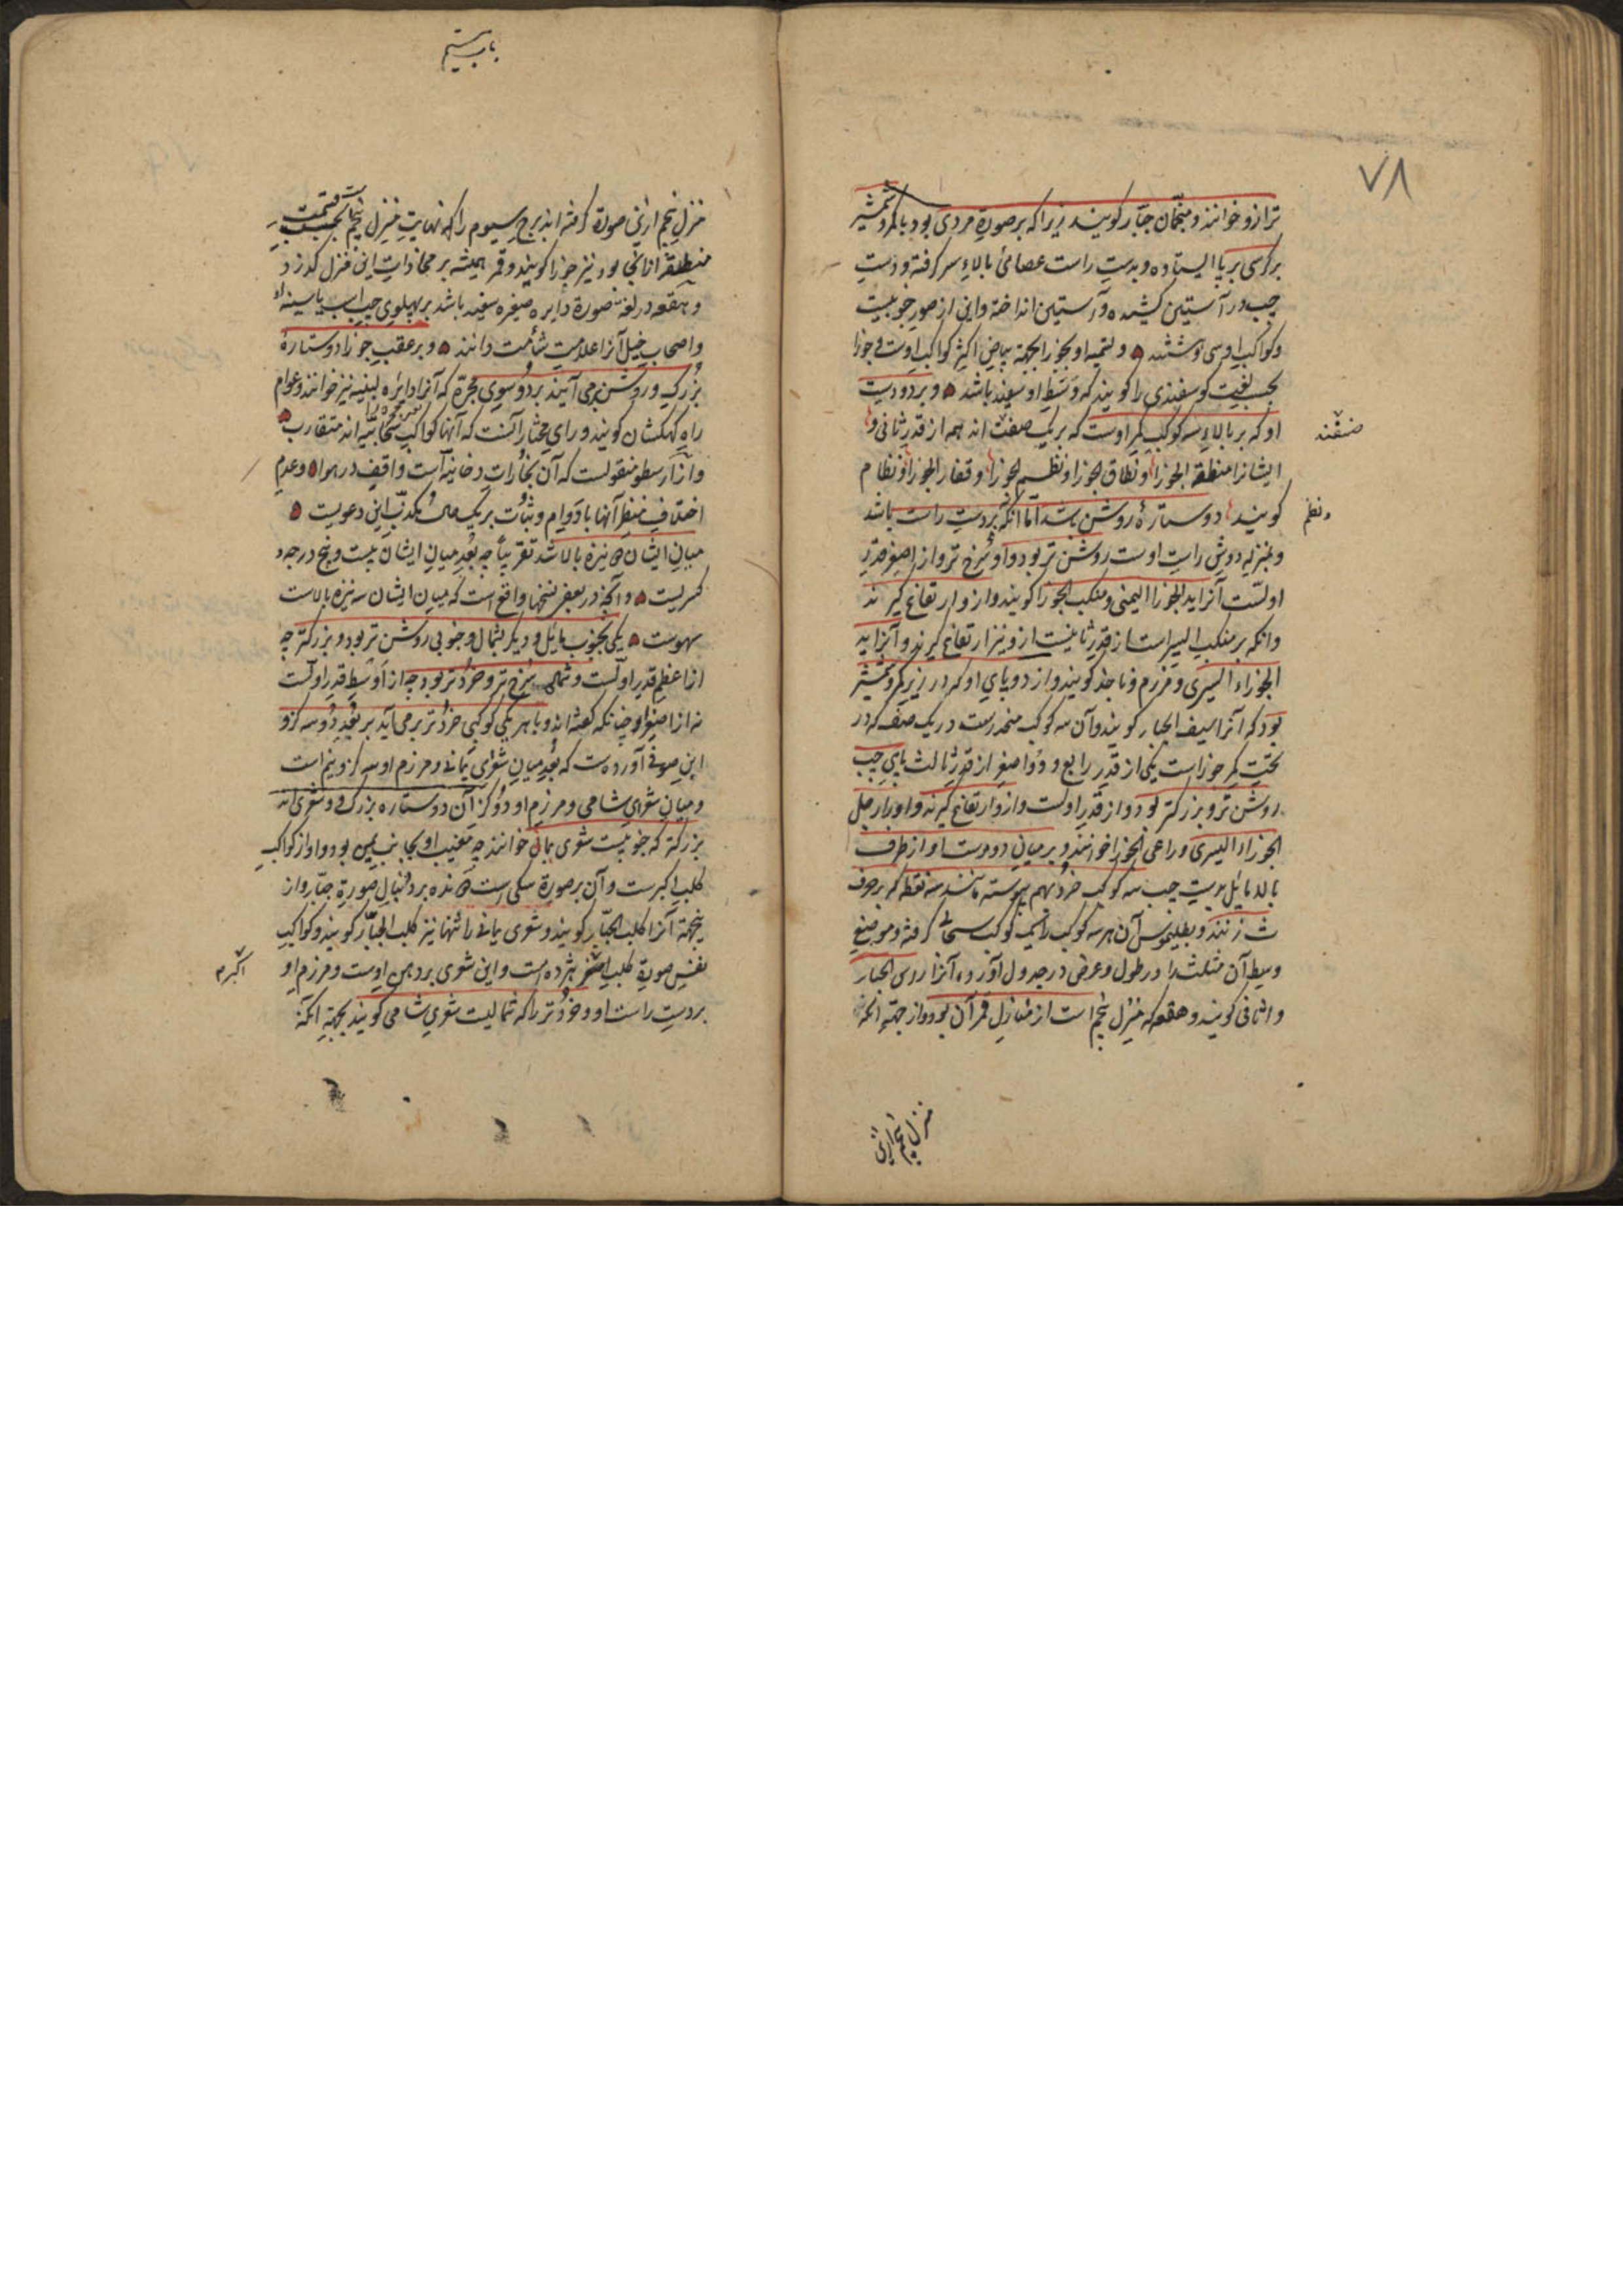 ٧٨
ترازو خوانند و منجّمان جبّار کویند زیرا که بر صورة مردی بود با کمر و شمشیر
بر کرسی بر پا ایستاده و بدست راست عصائی بالاء سر کرفته و دست
چپ در آستین کشیده و آستین انداخته و این از صور جنوبیست
و کواکب او سی و هشتند و تسمیه او بجوزا بجهة بیاض اکثر کواکب اوست و جوزا
بحسب لغت کوسفندی را کویند که وسط او سفید باشد و بر دو دست
او که بر بالاء سه کوکب کمر اوست که بر یک صفت اند همه از قدر ثانی و
ایشانرا منطقة الجوزا و نطاق الجوزا و نظم الجوزا و فقار الجوزا و نظام
کویند دو ستارهٔ روشن باشد امّا آنکه بر دست راست باشد
و بمنزله دوش راست اوست روشن تر بود و او سرخ تر و از اصغر قدر
اولست آنرا ید الجوزا الیمنی و منکب الجوزا کویند و از و ارتفاع کیرند
وانکه بر منکب الیسر است از قدر ثانیست ازو نیز ارتفاع کیرند و آنرا ید
الجوزاء الیسری و مرزم و ناجذ کویند و از دو پای او که در زیر کمر و شمشیر
بود که آنرا سیف الجبار کویند و آن سه کوکب منحدرست در یک صف که در
تحت کمر جوزاست یکی از قدر رابع و دو اصغر از قدر ثالث پای چپ
روشن تر و بزرکتر بود و از قدر اولست و از و ارتفاع کیرند و او را رجل
الجوزاء الیسری و راعی الجوزا خوانند و بر میان دو دست او از طرف
بالا مایل بدست چپ سه کوکب خرد بهم پیوسته مانند سه نقطه که بر حرف
ث زنند و بطلیموس آن هر سه کوکب را یک کوکب سحابی کرفته و موضع
وسط آن مثلث را در طول و عرض در جدول آورده آنرا راس الجبار
و اثافی کویند و هقعه که منزل پنجم است از منازل قمر آن بود و از جهة انکه
صفند
و نظم
منزل پنجم از این
باب بیستم
منزل پنجم از این صورة کرفته اند برج سیوم را که نهایت منزل پنجم بحسب قسمت
منطقه اثنانی بود نیز جوزا کویند و قمر همیشه بر محاذات این منزل کذرد
و هقعه در لغة صورة دایره صغیره سفید باشد بر پهلوی چپ اسب یا سینه او
و اصحاب خیل آنرا علامت شأمت دانند و بر عقب جوزا دو ستارهٔ
بزرک و روشن بر می آیند بر دو سوی مجرّه که آنرا دایره لبنیه نیز خوانند و عوام
راه کهکشان کویند و رای مختار آنست که آنها کواکب سحابیّه اند متقارب
و از ارسطو منقولست که آن بخارات دخانیه است واقف در هوا و عدم
اختلاف منظر آنها با دوام و ثبات بر یک حال مکذب این دعویست
میان ایشان ده نیزه بالا باشد تقریباً چه بُعد میان ایشان بیست و پنج درجه و
کسریست و آنچه در بعضی نسخها واقع است که میان ایشان سه نیزه بالاست
سهوست یکی بجنوب مایل و دیکر بشمال و جنوبی روشن تر بود و بزرکتر چه
از اعظم قدر اولست و شمالی سرخ تر و خردتر بود چه از اوسط قدر اولست
نه از اصغر او چنانکه کفته اند و با هر یکی کوکبی خردتر بر می آید بر بُعد دو سه کز و
ابن صوفی آورده است که بُعد میان شعرای یمانی و مرزم او سه کز و نیم است
و میان شعرای شامی و مرزم او دو کز آن دو ستاره بزرک دو شعری اند
بزرکتر که جنوبیست شعری یمانی خوانند چه مغیب او بجانب یمین بود و او از کواکب
کلب اکبرست و آن بر صورة سکی است دونده بر دنبال صورة جبّار و از
ینجهة آنرا کلب الجبّار کویند و شعری یمانی را تنها نیز کلب الجبّار کویند و کواکب
نفس صورة کلب اصغر هژده است و این شعری بر دهن اوست و مرزم او
بر دست راست او و خردتر را که شمالیست شعری شامی کویند بجهة انکه
اکبر م